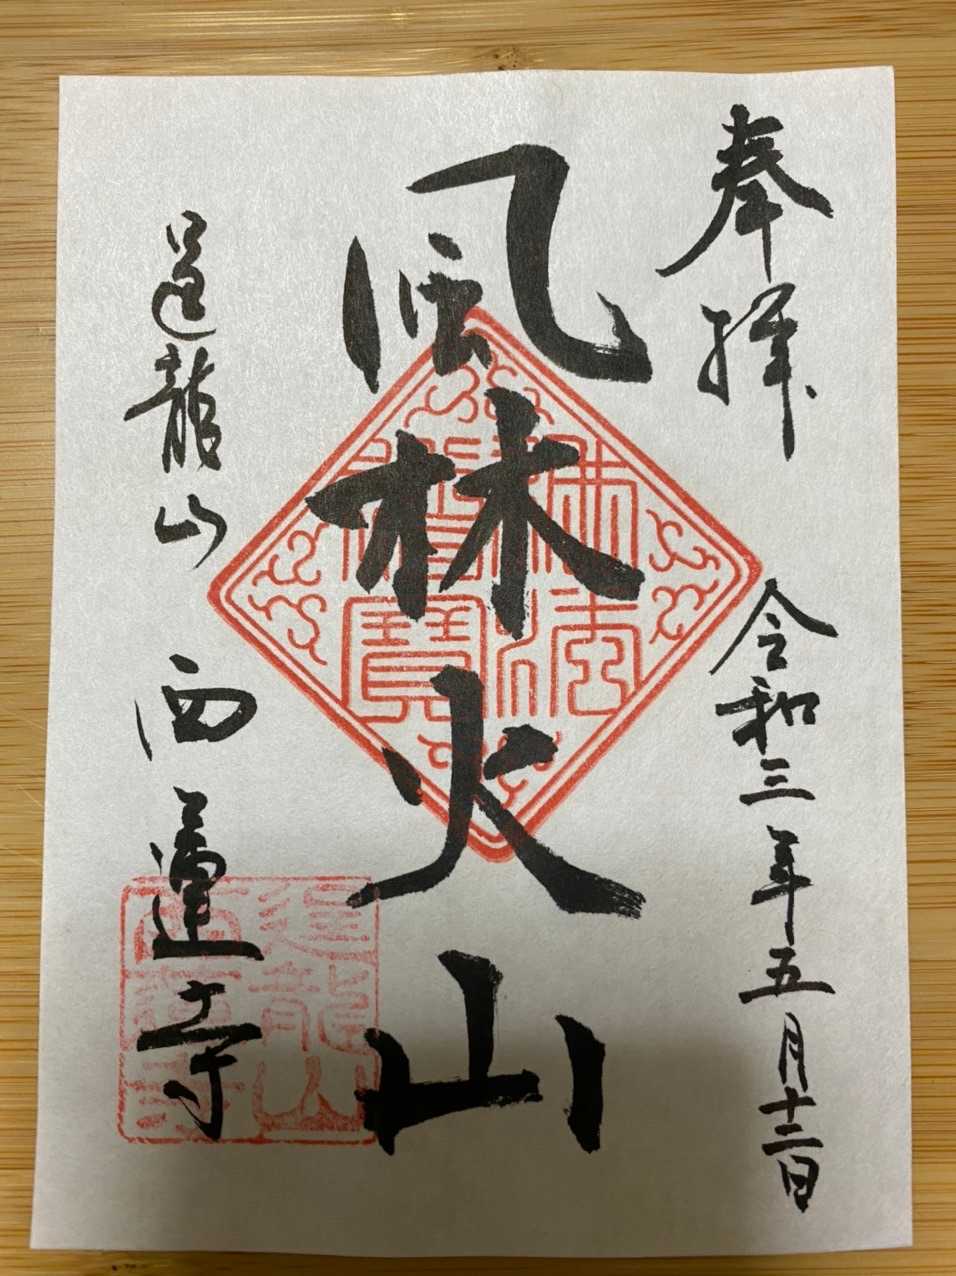 奉拝
令和三年五月十二日
風林火山
進龍山
西蓮寺
佛法
僧寶
進龍山
西蓮寺